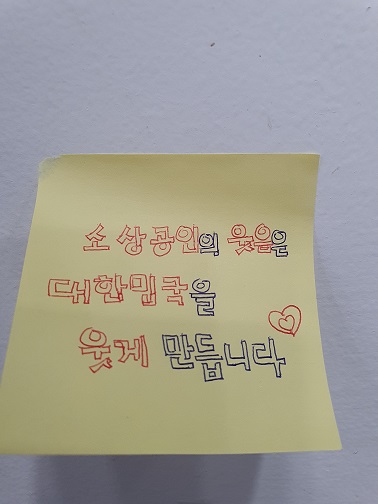 소상공인의 웃음은
대한민국을
웃게 만듭니다